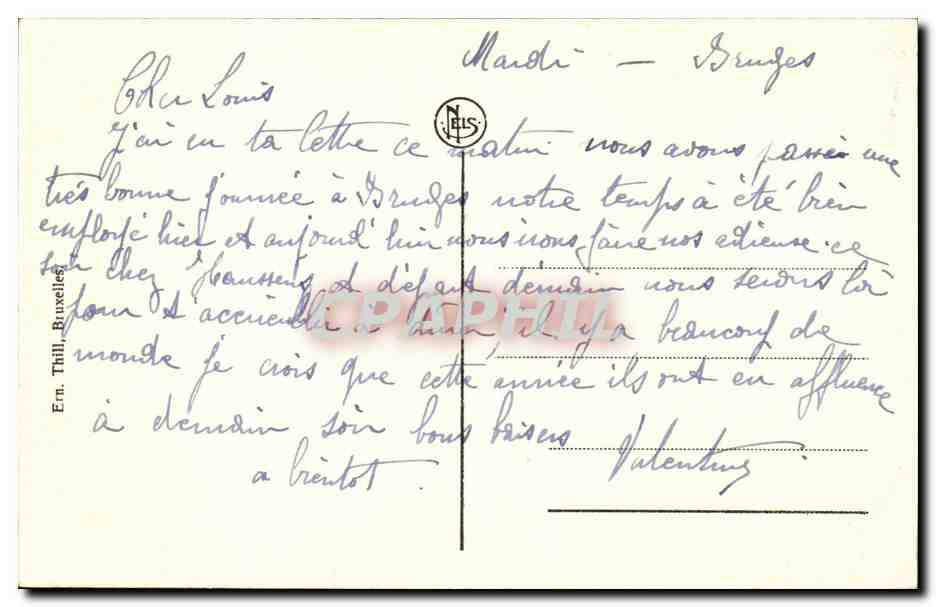 Mardi — Bruges
Cher Louis
NELS
j'ai eu ta lettre ce matin nous avons passée une
très bonne journée à Bruges notre temps à été bien
employé hier et aujourd'hui nous irons faire nos adieuse ce
soir chez et départ demain nous serons là
pour t'accueillir à il y a beaucoup de
monde je crois que cette année ils ont en affluence
à demain soir bons baisers Valentine
a bientot.
Ern. Thill, Bruxelles
CPAPHIL